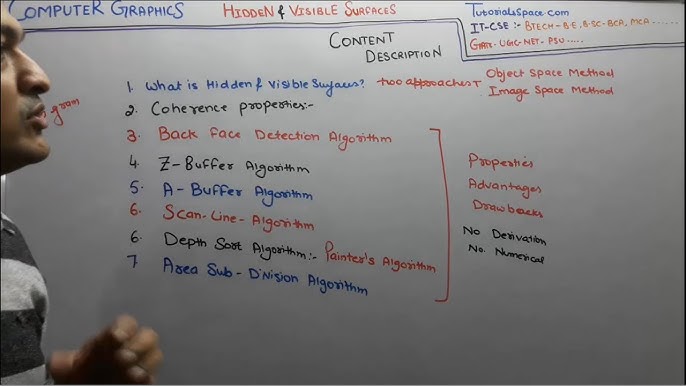 COMPUTER GRAPHICS HIDDEN & VISIBLE SURFACES
TutorialsSpace.com
IT-CSE :- BTECH-B.E, B.SC-BCA, MCA ......
GATE-UGC-NET-PSU.....
CONTENT
DESCRIPTION
1. What is Hidden & Visible Surfaces? two approaches
Object Space Method
Image Space Method
gram
2. Coherence properties:-
3. Back Face Detection Algorithm
4. Z-Buffer Algorithm
5. A-Buffer Algorithm
6. Scan-Line-Algorithm
6. Depth Sort Algorithm:- Painter's Algorithm
7 Area Sub-Division Algorithm
Properties
Advantages
Drawbacks
No Derivation
No. Numerical